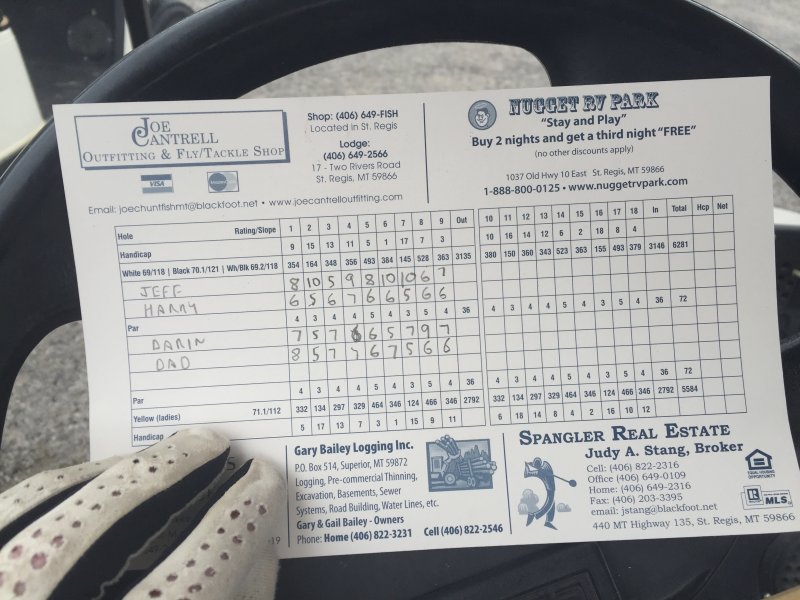 JOE
CANTRELL
OUTFITTING & FLY/TACKLE SHOP
VISA
MasterCard
Shop: (406) 649-FISH
Located in St. Regis
Lodge:
(406) 649-2566
17 - Two Rivers Road
St. Regis, MT 59866
Email: joechuntfishmt@blackfoot.net • www.joecantrelloutfitting.com
NUGGET RV PARK
"Stay and Play"
Buy 2 nights and get a third night "FREE"
(no other discounts apply)
1037 Old Hwy 10 East St. Regis, MT 59866
1-888-800-0125 • www.nuggetrvpark.com
Hole Rating/Slope 1 2 3 4 5 6 7 8 9 Out 10 11 12 13 14 15 16 17 18 In Total Hcp Net
Handicap 9 15 13 11 5 1 17 7 3 10 16 14 12 6 2 18 8 4
White 69/118 | Black 70.1/121 | Wh/Blk 69.2/118 354 164 348 356 493 384 145 528 363 3135 380 150 360 343 523 363 155 493 379 3146 6281
JEFF 8 10 5 9 8 10 10 6 7
HARRY 6 5 6 7 6 6 5 6 6
Par 4 3 4 4 5 4 3 5 4 36 4 3 4 4 5 4 3 5 4 36 72
DARIN 7 5 7 6 6 5 7 9 7
DAD 8 5 7 5 6 7 5 6 6
Par 4 3 4 4 5 4 3 4 4 36 4 3 4 4 5 4 3 5 4 36 72
Yellow (ladies) 71.1/112 332 134 297 329 464 346 124 466 346 2792 332 134 297 329 464 346 124 466 346 2792 5584
Handicap 5 17 13 7 3 1 15 9 11 6 18 14 8 4 2 16 10 12
Gary Bailey Logging Inc.
P.O. Box 514, Superior, MT 59872
Logging, Pre-commercial Thinning,
Excavation, Basements, Sewer
Systems, Road Building, Water Lines, etc.
Gary & Gail Bailey - Owners
Phone: Home (406) 822-3231 Cell (406) 822-2546
SPANGLER REAL ESTATE
Judy A. Stang, Broker
Cell: (406) 822-2316
Office (406) 649-0109
Home: (406) 649-2316
Fax: (406) 203-3395
email: jstang@blackfoot.net
440 MT Highway 135, St. Regis, MT 59866
EQUAL HOUSING
OPPORTUNITY
R
REALTOR
MLS